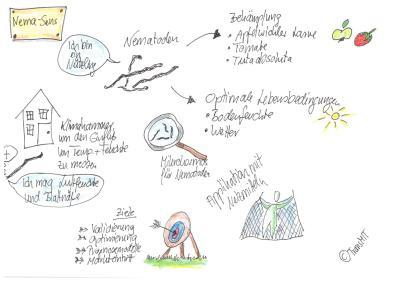 Nema-Sens
Ich bin
ein
Nützling
Nematoden
Bekämpfung
• Apfelwickler Larve
• Tomate
• Tuta absoluta
Optimale Lebensbedingungen
• Bodenfeuchte
• Wetter
Klimakammer
um den Einfluß
von Temp + Feuchte
zu messen
Ich mag Luftfeuchte
und Blattnäße
für Nematoden
Applikation mit
Netzmitteln
Ziele
Validierung
Optimierung
Prognosemodelle
©TransMIT